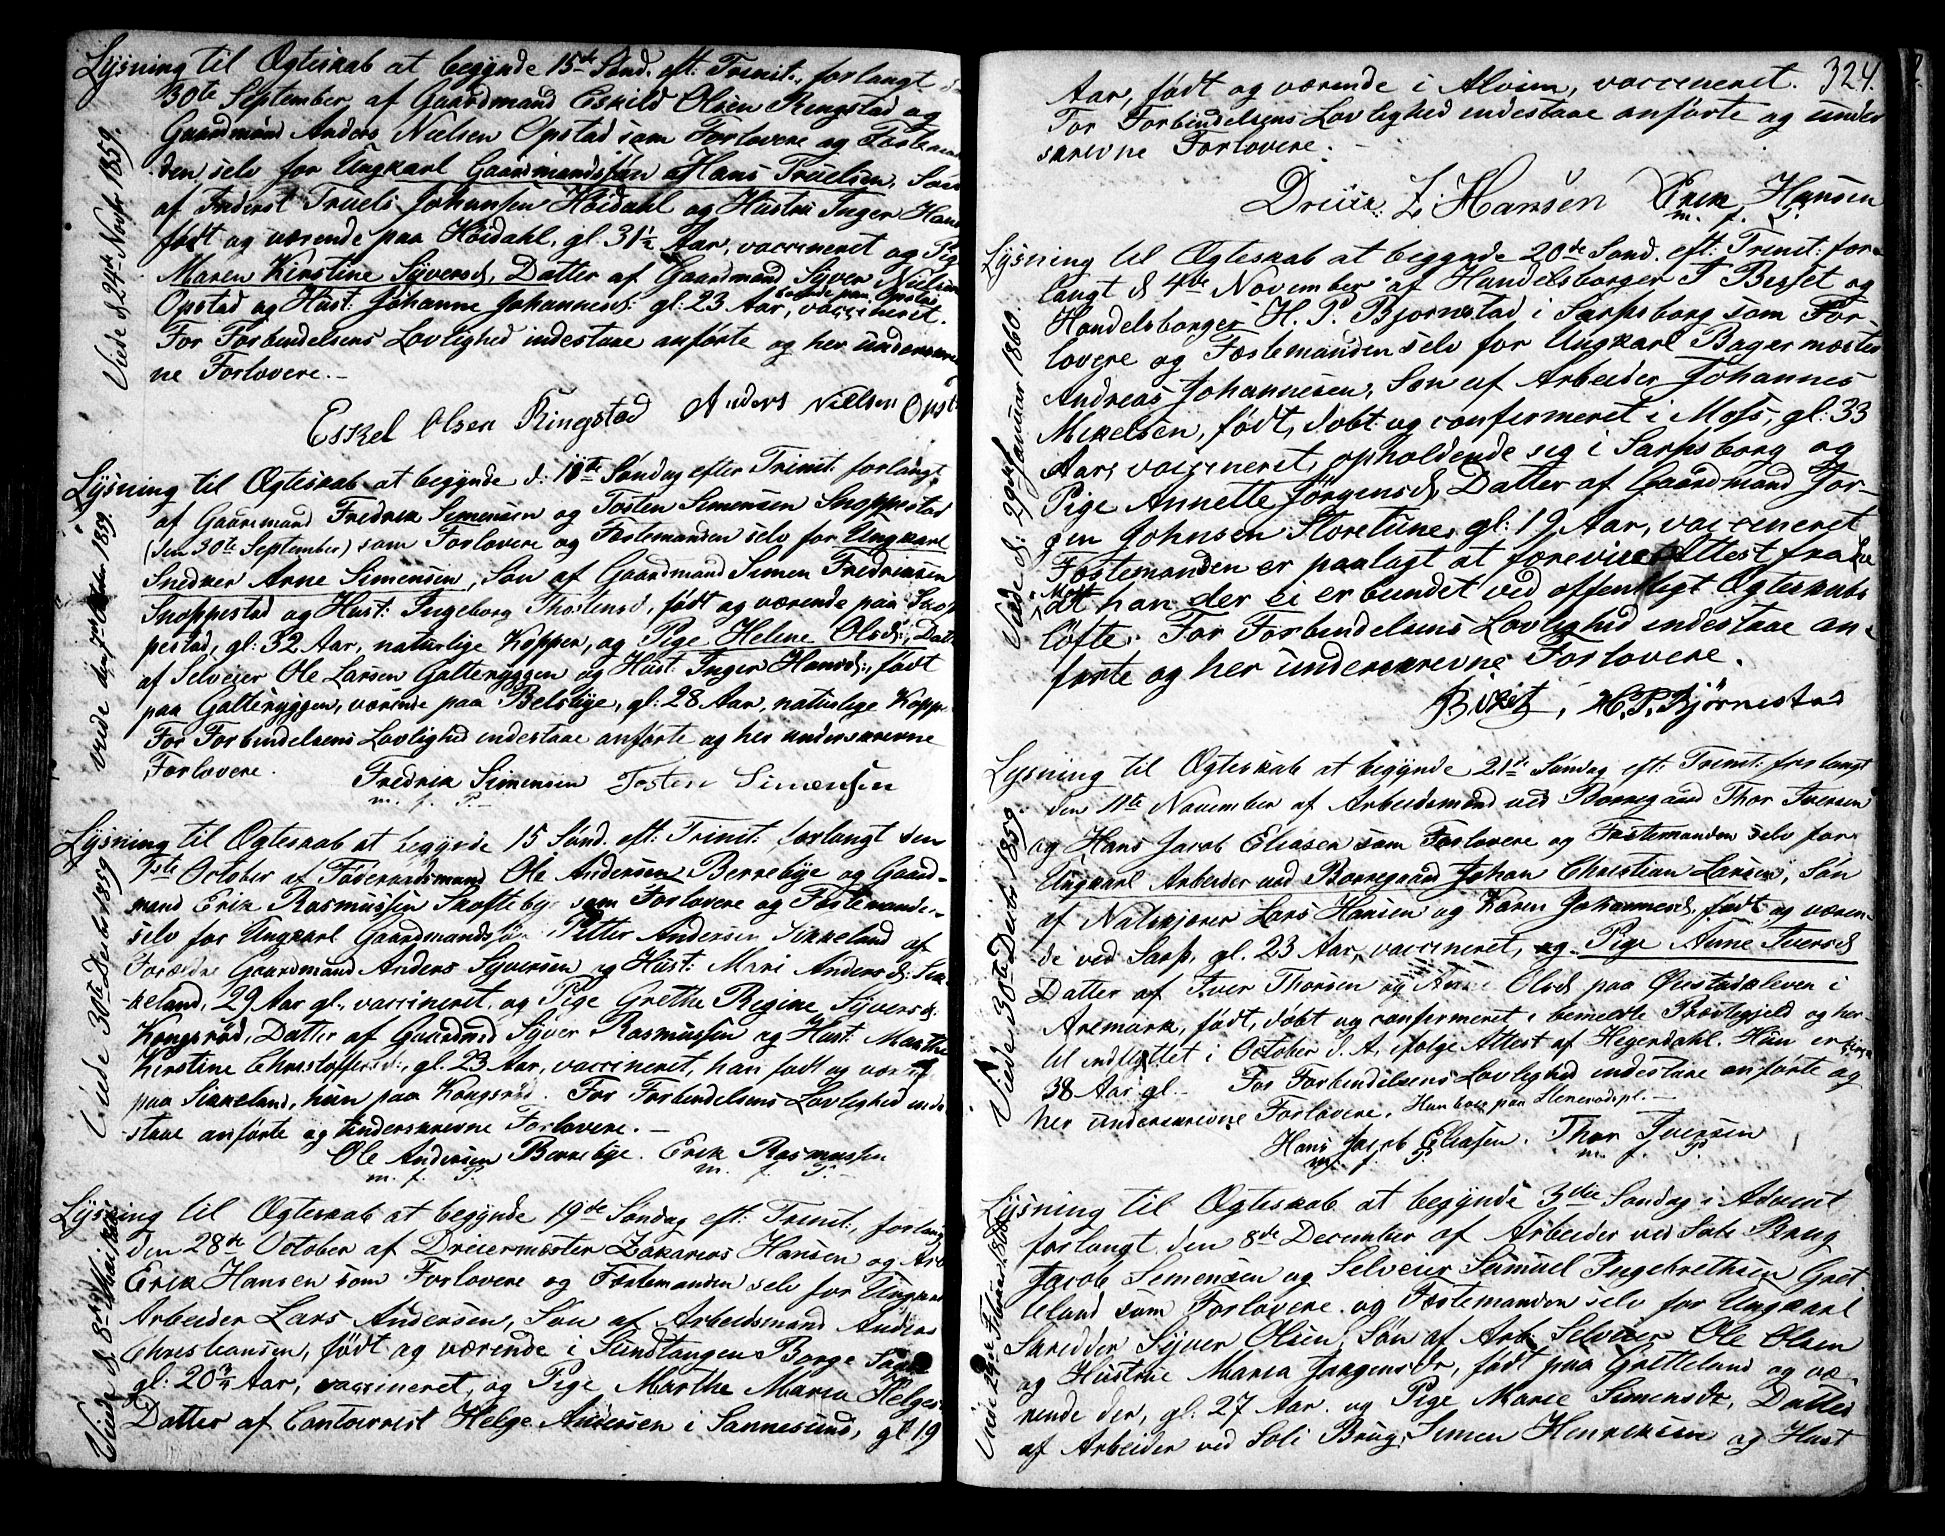 Lysning til Ægteskab at begynde 15de Sønd. eft: Trinit:, forlangt
30te September, af Gaardmand Eskild Olsen Ringstad og
Gaardmand Anders Nielsen Opstad som Forlovere og Fæstemanden
selv for Ungkarl Gaardmandssøn Hans Truelsen, Søn
af Inderst Truels Johansen Høidahl og Hustru Inger Hans
født og værende paa Høidahl, gl. 31½ Aar, vaccineret og Pige
Maren Kirstine Syversd, Datter af Gaardmand Syver Nielsen
Opstad og Hust: Johanne Johannesd: gl: 23 Aar, boende paa Opstad, vaccineret.
For Forbindelsens Lovlighed indestaae anførte og her underskrevne
Forlovere.–
Viede d 24de Novbr 1859.
Eskel Olsen Ringstad Anders Nielsen Opst
Lysning til Ægteskab at begynde d: 18te Søndag efter Trinit: forlangt
af Gaardmand Fredrik Simensen og Tosten Simensen Snoppestad
(den 30te September) som Forlovere og Fæstemanden selv for Ungkarl
Snedker Arne Simensen, Søn af Gaardmand Simen Fredriksen
Snoppestad og Hust: Ingeborg Thostensd, født og værende paa Snop
pestad, gl: 32 Aar, naturlige Kopper, og Pige Helene Olsd:, Datt
af Selveier Ole Larsen Galteryggen og Hust: Inger Hansd:, født
paa Galteryggen, værende paa Belsbye, gl: 28 Aar, naturlige Koppe
For Forbindelsens Lovlighed indestaae anførte og her underskrevne
Forlovere.
viede den 7de Octbr. 1859.
Fredrik Simensen Tosten Simænsen
m. f. P.
Lysning til Ægteskab at begynde 15 Sønd. eft: Trinit: forlangt den
1ste October af Føderaadsmand Ole Andersen Berrebye og Gaard-
mand Erik Rasmussen Skoftebye som Forlovere og Fæstemanden
selv for Ungkarl Gaardmandssøn Petter Andersen Sikkeland af
Forældre Gaardmand Anders Syversen og Hust: Mari Andersd: Sik
keland, 29 Aar gl., vaccineret, og Pige Grethe Regine Syversd:
Kongsrød, Datter af Gaardmd Syver Rasmussen og Hust: Marthe
Kirstine Christoffersd:, gl. 23 Aar, vaccineret, han født og værende
paa Sikkeland, hun paa Kongsrød. For Forbindelsens Lovlighed inde
staae anførte og underskrevne Forlovere.–
Viede 30te Decbr 1859
Ole Andersen Berrebye. Erik Rasmussen
m. f. P. m. f. P.
Lysning til Ægteskab at begynde 19de Søndag eft: Trinit:, forlangt
den 28de October af Dreiermester Zakarias Hansen og Arb
Erik Hansen som Forlovere og Fæstemanden selv for Ungkarl
Arbeider Lars Andersen, Søn af Arbeidsmand Anders
Christiansen, født og værende i Sundtangen Borge Sogn
gl: 20¾ Aar, vaccineret, og Pige Marthe Maria Helges
Datter af Contoirrist Helge Andersen i Sannesund, gl 19
Viede d 8de Mai 1860
324.
Aar, født og værende i Alvim, vaccineret.
For Forbindelsens Lovlighed indestaae anførte og under
skrevne Forlovere:–
Dreier: Z. Hansen Erik Hansen
m. f. P.
Lysning til Ægteskab at begynde 20de Sønd. eft: Trinit: for-
langt d 4de November af Handelsborger Bisset og
Handelsborger H. P. Bjornstad i Sarpsborg som For-
lovere og Fæstemanden selv for Ungkarl Bagermester
Andreas Johannesen, Søn af Arbeider Johannes
Mikelsen, født, døbt og confirmeret i Moss, gl: 33
Aar, vaccineret, opholdende sig i Sarpsborg og
Pige Annette Jörgensd, Datter af Gaardmand Jor-
gen Johnsen Storetune, gl: 19 Aar, vaccineret
Fæstemanden er paalagt at forevise Attest fra
Moss at han der ei er bundet ved offentligt Ægteskabs
løfte. For Forbindelsens Lovlighed indestaae an-
førte og her underskrevne Forlovere.
Viede d: 29de Januar 1860.
Bisset, H.P. Bjørnestad
Lysning til Ægteskab at begynde 21de Søndag eft: Trinit: forlangt
den 11te November af Arbeidsmand ved Borregaard Thor Iversen
og Hans Jacob Eliasen som Forlovere og Fæstemanden selv for
Ungkarl Arbeider ved Borregaard Johan Christian Larsen, Søn
af Lars Hansen og Karen Johannesd, født og væren-
de ved Sarp, gl. 23 Aar, vaccineret, og Pige Anne Iversd
Datter af Iver Thorsen og Anne Olsd paa Øistadkleven i
Aremark, født, døbt og confirmeret i bemeldte Præstegjeld og her
til indflyttet i October d. A. ifølge Attest af Hegerdahl. Hun er
38 Aar gl. For Forbindelsens Lovlighed indestaae anførte og
her underskrevne Forlovere.
Viede 30te Decbr 1859.
Hans Jacob Eliasen. Thor Iversen
m. f. P. m. f. P.
Lysning til Ægteskab at begynde 3die Søndag i Advent
forlangt den 8de December af Arbeider ved Soli Brug
Jacob Simensen og Selveier Samuel Ingebrethsen Gret
teland som Forlovere og Fæstemanden selv for Ungkarl
Skrædder Syver Olsen, Søn af Arb: Selveier Ole Olsen
og Hustrue Maria Jørgensdr, født paa Gretteland og væ-
rende der, gl: 27 Aar og Pige Marie Simensdr, Datter
af Arbeider ved Soli Brug, Simen Henriksen og Hust